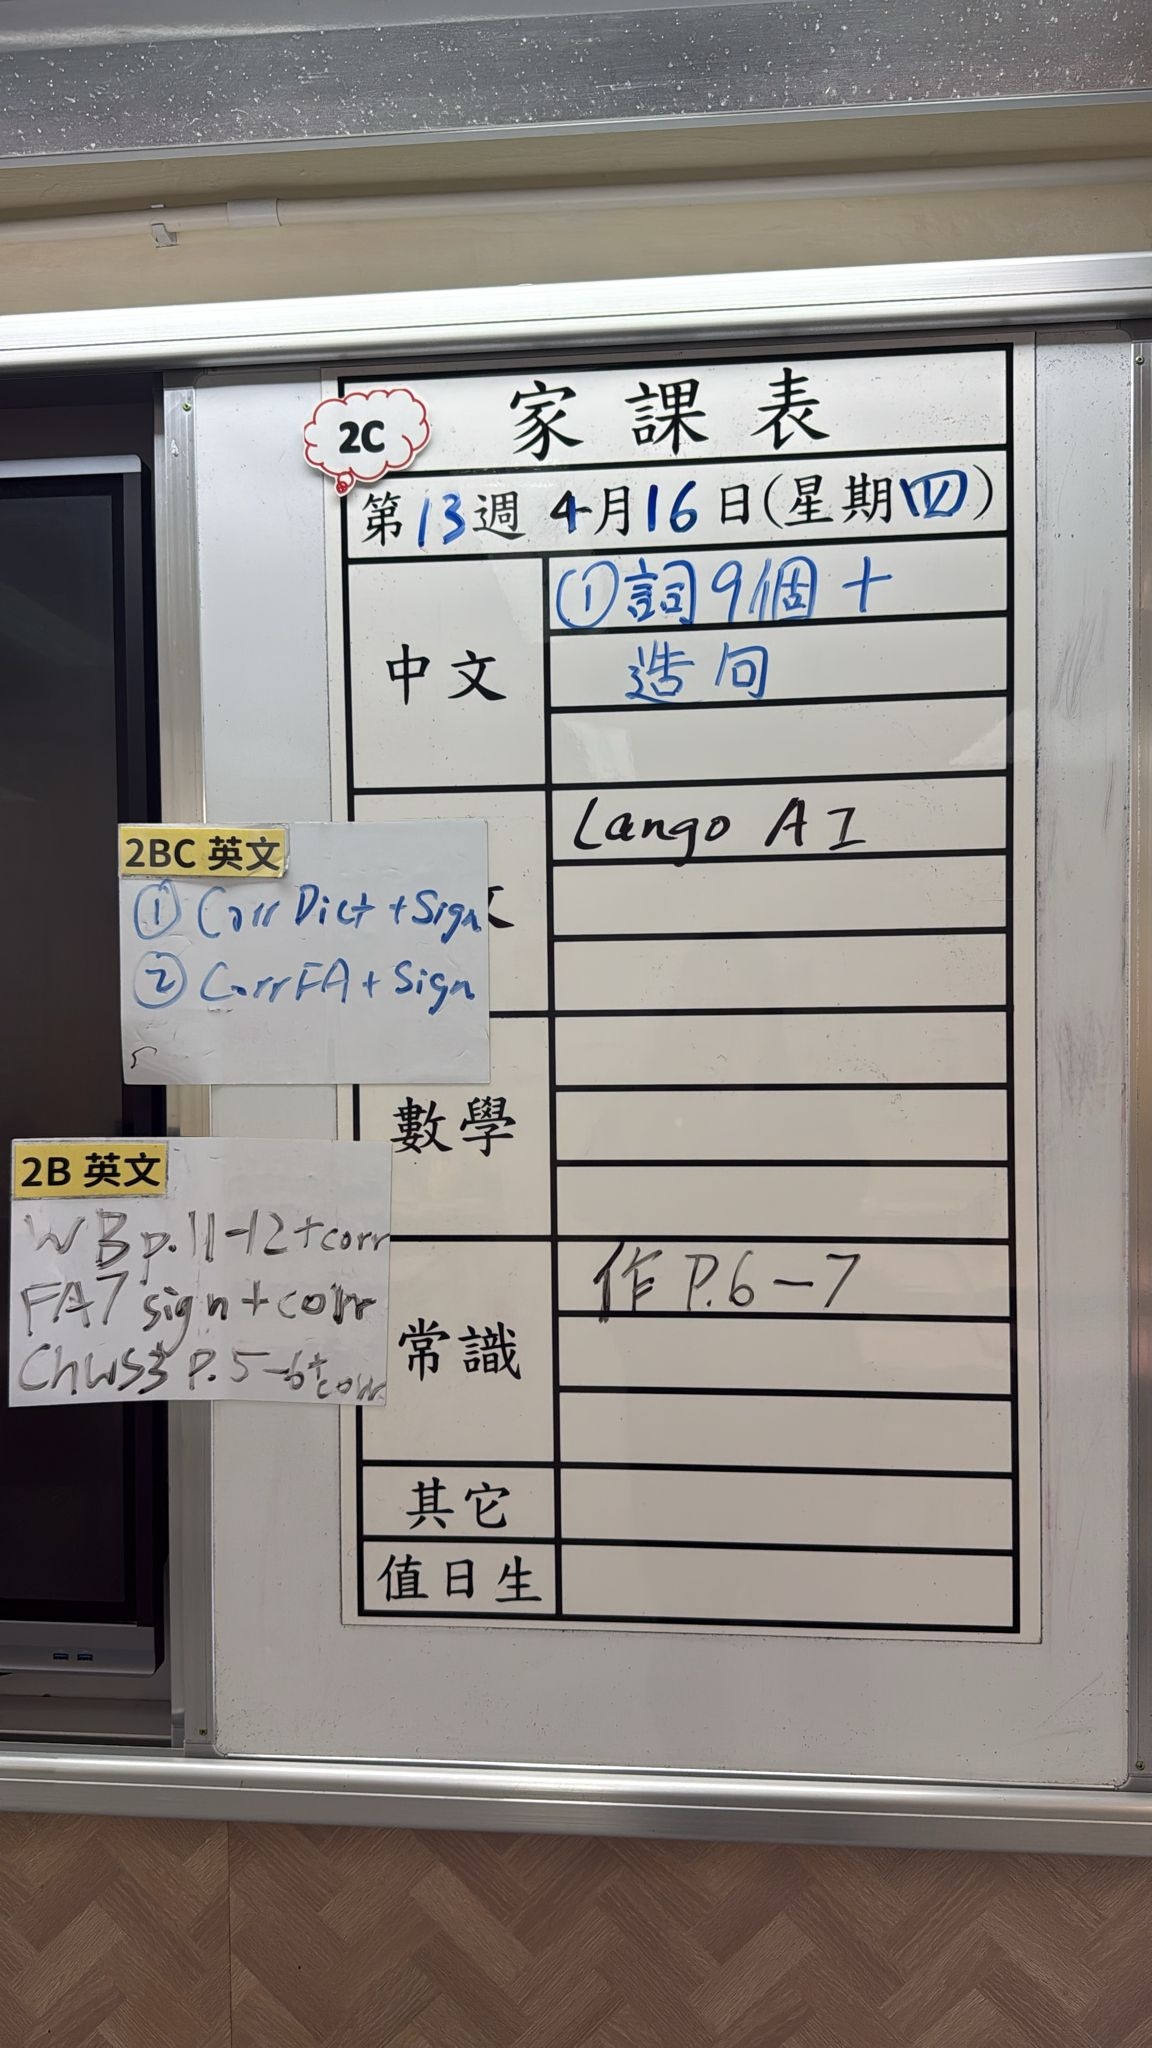 2C
家課表
第13週 4月16日(星期四)
中文
①詞9個+
造句
Lango AI
2BC 英文
①Corr Dict + Sign
②Corr FA + Sign
數學
2B 英文
WB p.11-12+corr
FA7 sign+corr
ChWS3 P.5-6+corr
常識
作 P.6-7
其它
值日生